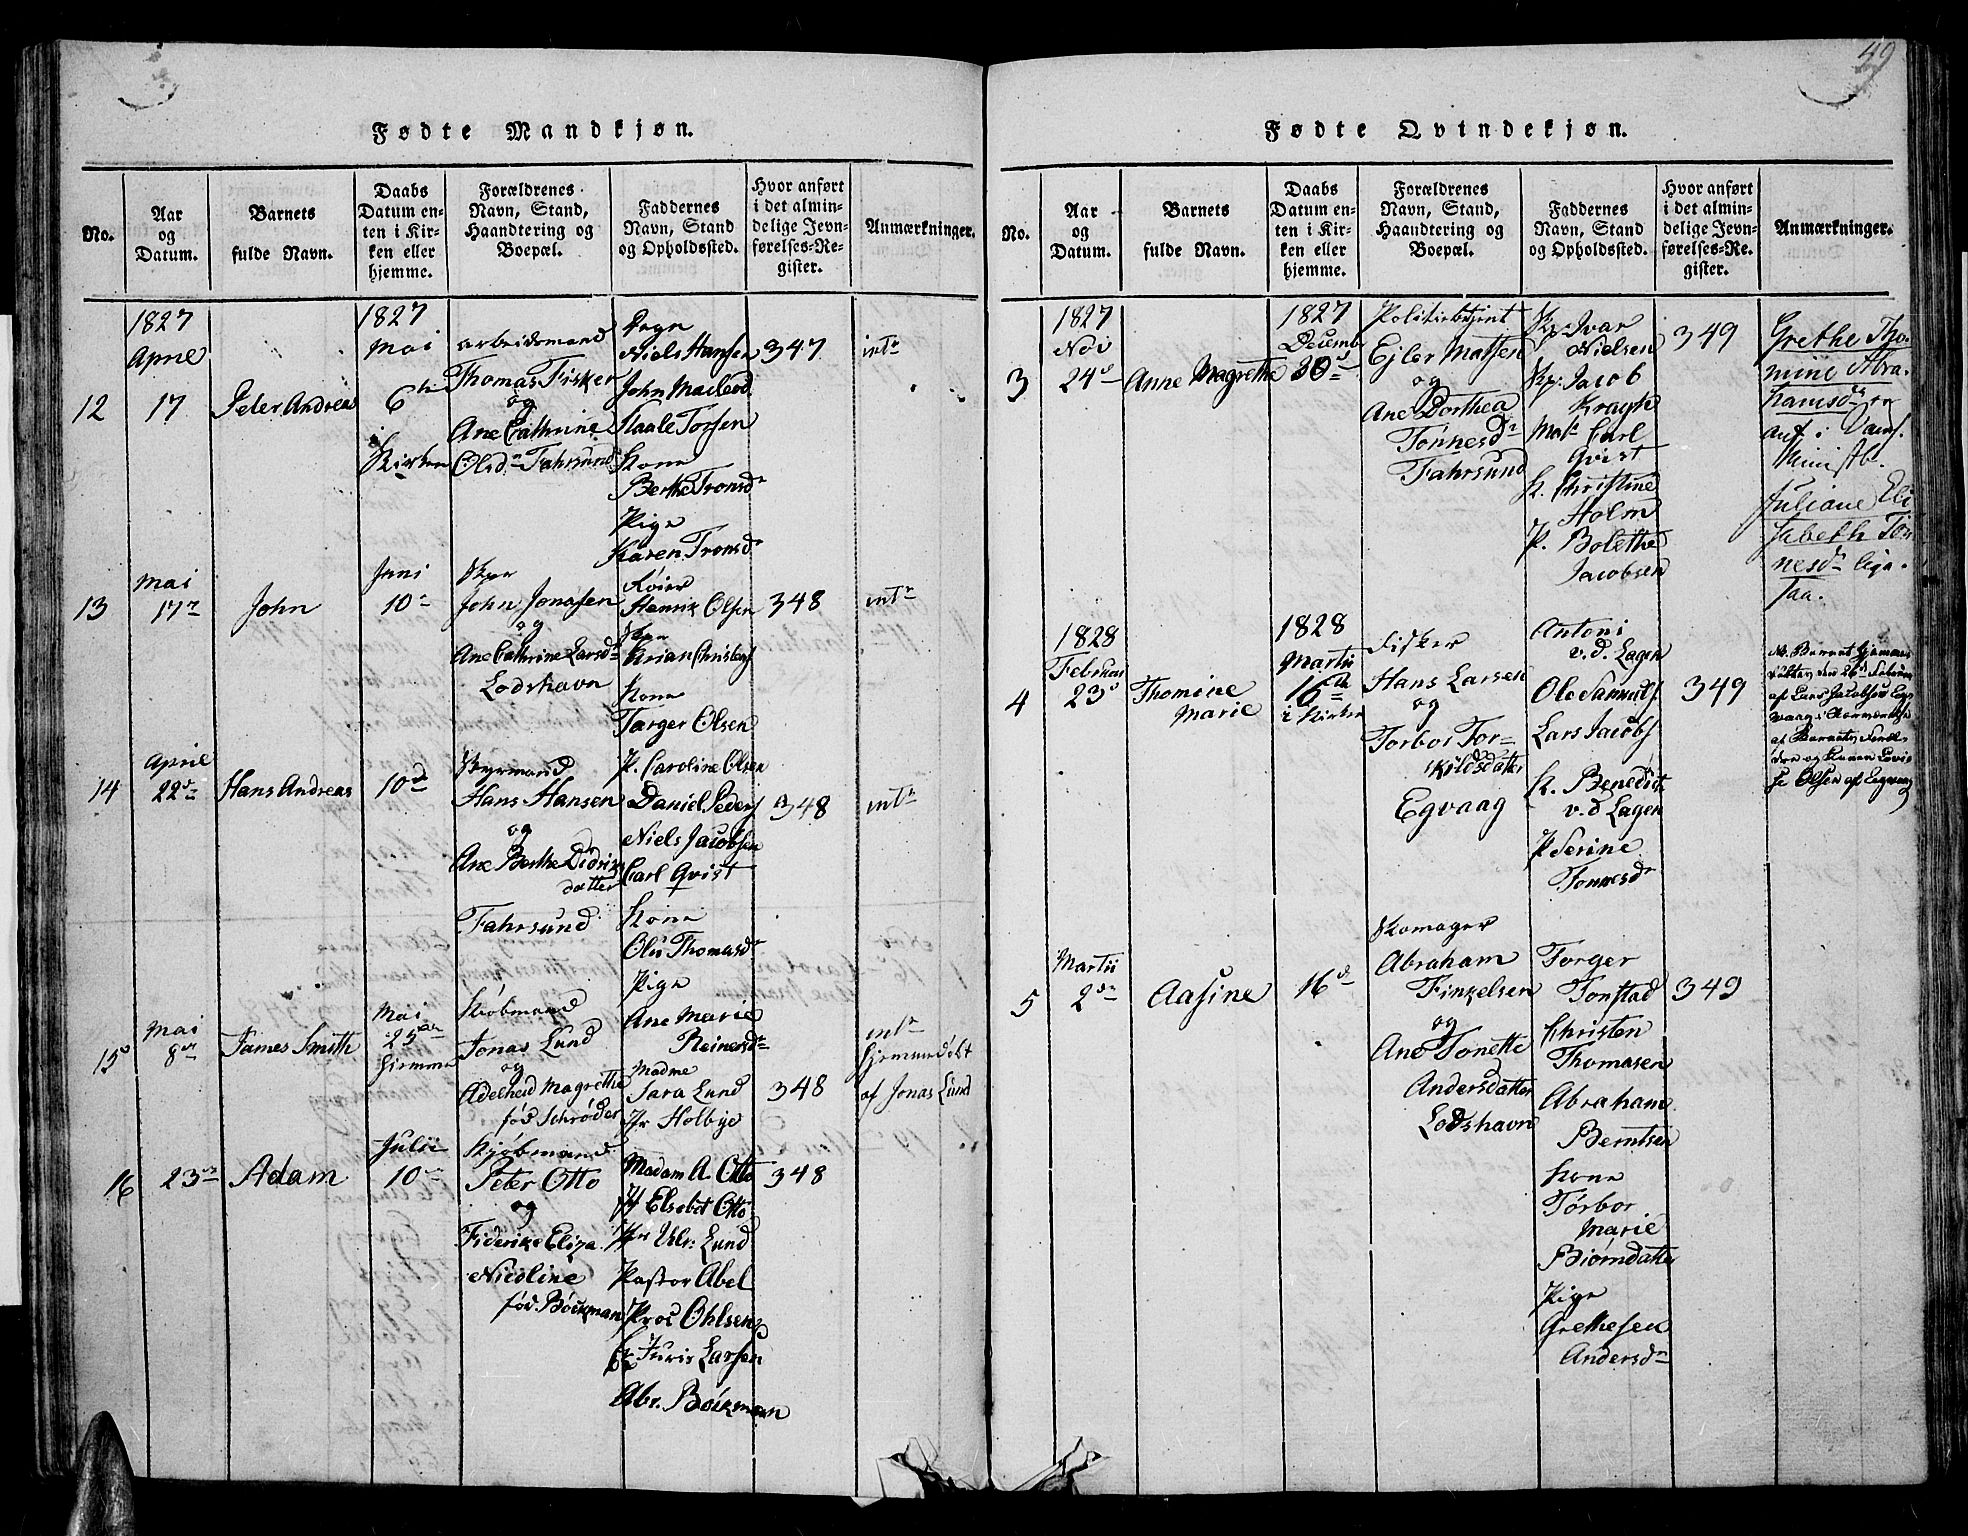 49
Fødte Mandkjøn.
No.
Aar
og
Datum.
Barnets
fulde Navn.
Daabs
Datum en-
ten i Kir-
ken eller
hjemme.
Forældrenes
Navn, Stand,
Haandtering og
Boepæl.
Faddernes
Navn, Stand
og Opholdssted.
Hvor anført
i det almin-
delige Jevn-
førelses-Re-
gister.
Anmærkninger.
12
1827
Aprie
17
Peter Andrea
1827
Mai
6te
i
Kirken
arbeidsmand
Thomas Fisker
og
Ane Cathrine
Olsdr Fahrsund
Niels Hansen
John Macleod
Staale Torsen
Kone
Berthe Tronsdr
Pige
Karen Tronsdr
347
intr
13
Mai
17
John
Juni
10
Skpr
John Jonasen
og
Ane Cathrine Larsdr
Lodshavn
Henrik Olsen
Skpr
Arian Chrisbers
Kone
Targer Olsen
P. Caroline Olsen
348
intr
14
Aprie
22
Hans Andreas
10de
Styrmand
Hans Hansen
og
Ane Berthe Didriks
datter
Fahrsund
Daniel Peders
Niels Jacobsen
Carl Qvist
Kone
Olu Thomasdr
Pige
Ane Marie
Reinersdr
348
intr
15
Mai
8
James Smith
Mai
25
hiemme
Kiøbmand
Jonas Lund
og
Adelheid Magrethe
fød Schrøder
Madme
Sara Lund
Jfr Holbye
348
intr
hjemmedøbt
af Jonas Lund
16
23
Adam
Julii
10
Kjøbmand
Peter Otto
og
Fiderike Eliza
Nicoline
fød Bøckman
Madam A. Otto
Jf Elsebet Otto
Jfr Ulr. Lund
Pastor Abel
Proc Ohlsen
Juris Larsen
Abr. Bøckman
348
Fødte Qvindekjøn.
No.
Aar
og
Datum.
Barnets
fulde Navn.
Daabs
Datum en-
ten i Kir-
ken eller
hjemme.
Forældrenes
Navn, Stand,
Haandtering og
Boepæl.
Faddernes
Navn, Stand
og Opholdssted.
Hvor anført
i det almin-
delige Jevn-
førelses-Re-
gister.
Anmærkninger.
3
1827
Nov
24
Anne Magrethe
1827
Decemb
30
Politiebetjent
Ejler Matsen
og
Ane Dorthea
Tønnesdr
Fahrsund
Skp. Ivar
Nielsen
Skp. Jacob
Krayke
Mat Carl
Qvist
K. Christine
Holm
P. Bolethe
Jacobsen
349
Grethe Tho-
mine Abra-
hamsdr er
anf. i
Ministb.
Juliane Eli-
sabeth Tøn-
nesdr liga-
saa.
4
1828
Februar
23
Thomine
Marie
1828
Martii
16de
i Kirken
Fisker
Hans Larsen
og
Torbor Tor-
skildsdatter
Egvaag
Antoni
v.d. Lagen
Ole Samuels
Lars Jacobs
K. Benedict
v.d Lagen
P Serine
Tønnesdr
349
Nb. Barnet hjemme
døbt den 26d Februar
af Lars Jacobsen Eg-
vaag i Nærværelse
af Barnets Foræl-
dre og Karen Lovi-
se Olsen af Egvaag
5
Martii
2
Aasine
16d
Skomager
Abraham
Finkelsen
og
Ane Tonette
Andersdatter
Lodshavn
Torger
Tonstad
Christen
Thomasen
Abraham
Berntsen
Kone
Tørbor
Marie
Biørndatter
Pige
Grethesen
Andersdr
349